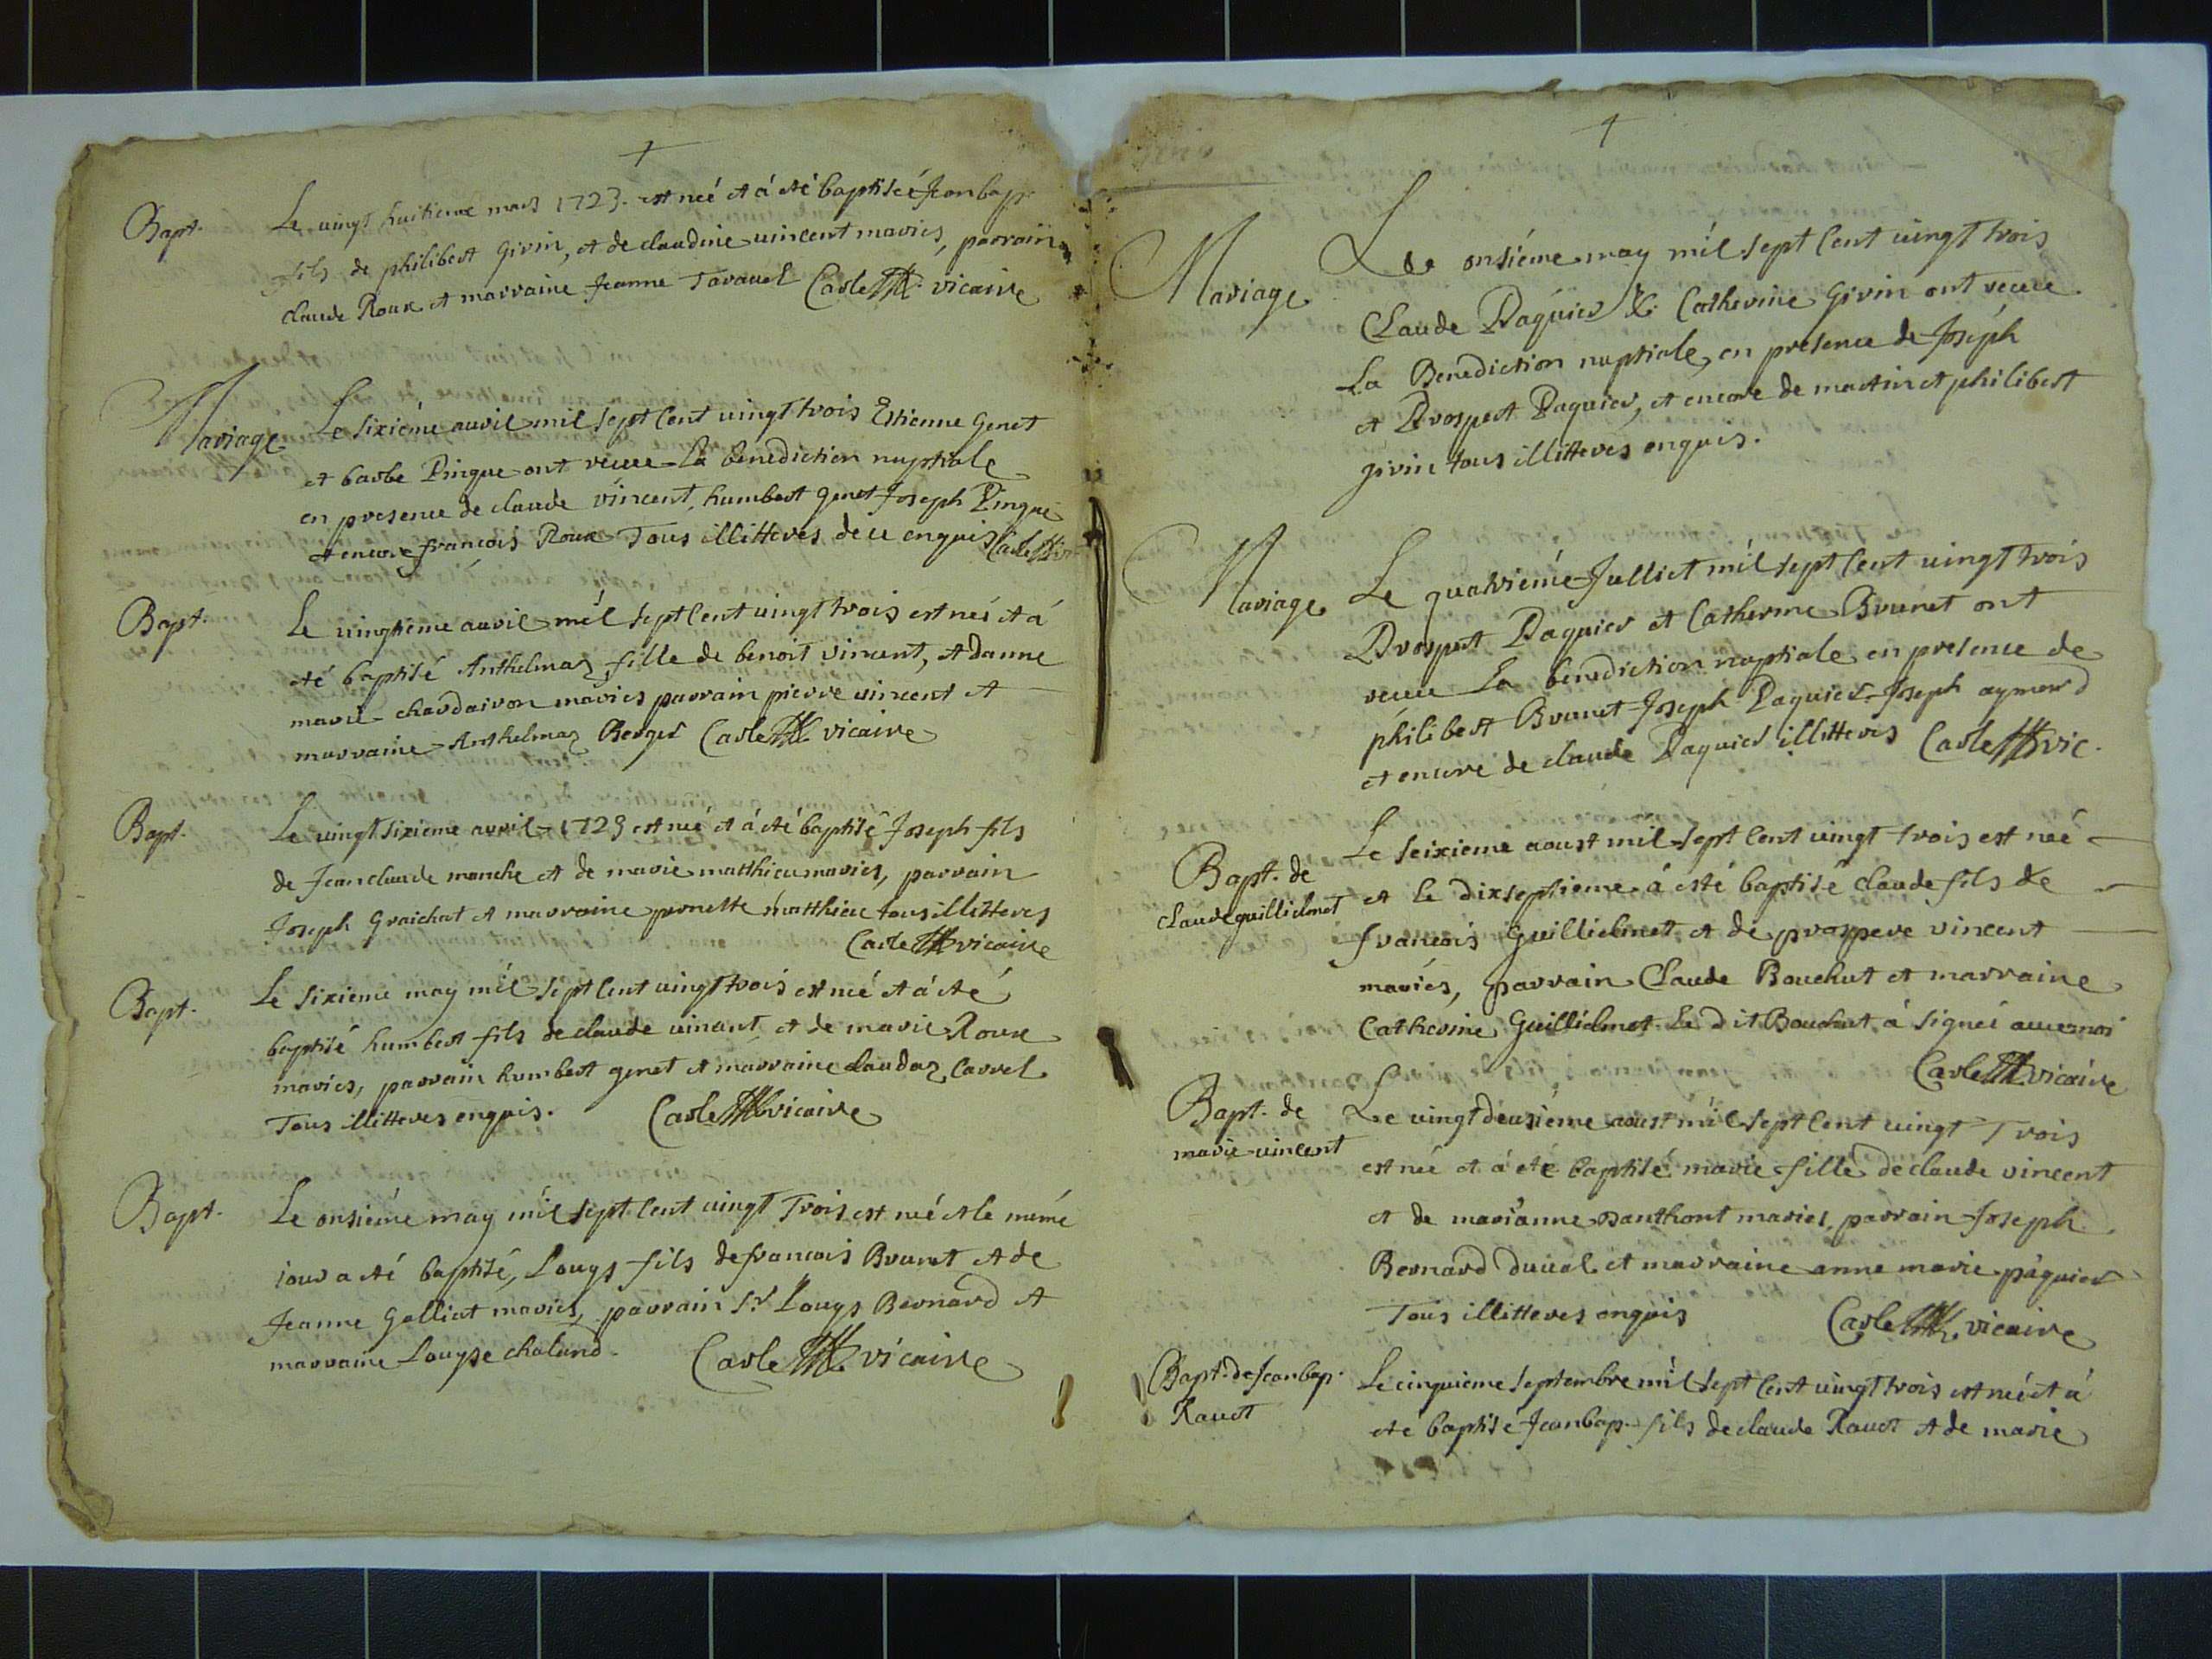 Bapt.
Le vingt huitieme mars 1723. est née et á eté baptisée Jean bap.
fils de philibert Girin, et de claudine vincent mariés, parrain
claude Roux et marraine Jeanne Taravel Carle vicaire
Mariage
Le sixiéme avril mil sept cent vingt trois Estienne Genet
et barbe Pingue ont receu la benediction nuptiale
en presence de claude vincent, humbert genet Joseph Pingue
et encore francois Roux Tous illitteres de ce enquis Carle
Bapt.
Le vingtieme avril mil sept cent vingt trois est nés et á
eté baptisé Anthelmaz fille de benoit vincent, et danne
marie chardairon mariés parrain pierre vincent et
marraine Anthelmaz Berger Carle vicaire
Bapt.
Le vingt sixieme avril 1723 est neé et á eté baptisé Joseph fils
de Jean claude manche et de marie matthieu mariés, parrain
Joseph Graichat et marraine pernette matthieu tous illitteres
Carle vicaire
Bapt.
Le sixieme may mil sept cent vingt trois est neé et á eté
baptisé humbert fils de claude vincent et de marie Roux
mariés, parrain humbert genet et marraine claudaz Carrel
Tous illitteres enquis. Carle vicaire
Bapt.
Le onsiéme may mil sept cent vingt Trois est né et le méme
jour a eté baptisé, Louys fils de francois Brunet et de
Jeanne Galliat mariés, parrain Sr. Louys Bernard et
marraine Louyse chaland. Carle vicaire
Mariage
Le onsiéme may mil sept cent vingt trois
Claude Paquier & Catherine Girin ont receu
La Benediction nuptiale, en presence de Joséph
et Prospert Paquier, et encore de martin et philibert
girin tous illitterés enquis.
Mariage
Le quatriéme Julliet mil sept cent vingt trois
Prospert Paquier et Catherine Brunet ont
receu La benediction nuptiale en presence de
philibert Brunet Joseph Paquier Joseph aymard
et encore de claude Paquier illitterés Carle vic.
Bapt. de
claude guillielmet
Le seixieme aoust mil sept cent vingt trois est neé
et le dixseptieme á esté baptisé claude fils de
francois Guillielmet et de prospere vincent
mariés, parrain Claude Bouchut et marraine
Catherine Guillielmet le dit Bouchut á signeé avec moi
Carle vicaire
Bapt. de
marie vincent
Le vingt deusiéme aoust mil sept cent vingt Trois
est neé et á eté baptisé marie fille de claude vincent
et de marianne mariés, parrain Joseph
Bernard duval et marraine anne marie páquier
Tous illitteres enquis Carle vicaire
Bapt. de Jean bap.
Ravet
Le cinquieme septembre mil sept cent vingt trois est neé et á
eté baptisé Jean bap. fils de claude Ravet et de marie